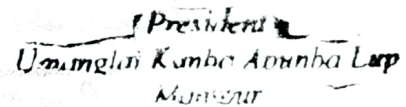 President
Umanglai Kanba Apunba Lup
Manipur